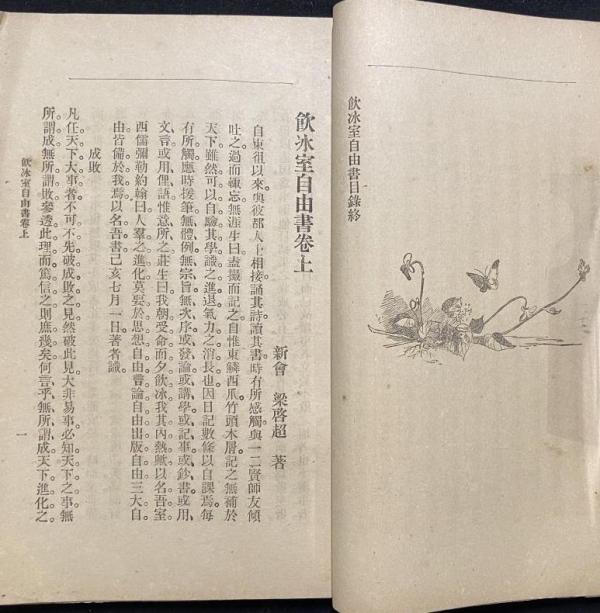 飲冰室自由書目錄終
飲冰室自由書卷上
新會 梁啓超 著
自東徂以來。與彼都人士相接。誦其詩。讀其書。時有所感觸。與一二賢師友傾
吐之。過而輒忘。無涯生曰。盍最而記之。自惟東鱗西爪。竹頭木屑。記之無補於
天下。雖然。可以自驗其學識之進退。氣力之消長也。因日記數條以自課焉。每
有所觸。應時援筆。無體例。無宗旨。無次序。或發論。或講學。或記事。或鈔書。或用
文言。或用俚語。惟意所之。莊生曰。我朝受命而夕飲冰。我其內熱歟。以名吾室。
西儒彌勒約翰曰。人羣之進化。莫要於思想自由。言論自由。出版自由。三大自
由。皆備於我焉。以名吾書。己亥七月一日著者識。
成敗
凡任天下大事者。不可不先破成敗之見。然破此見。大非易事。必知天下之事。無
所謂成。無所謂敗。參透此理而篤信之。則庶幾矣。何言乎無所謂成。天下進化之
飲冰室自由書卷上
一